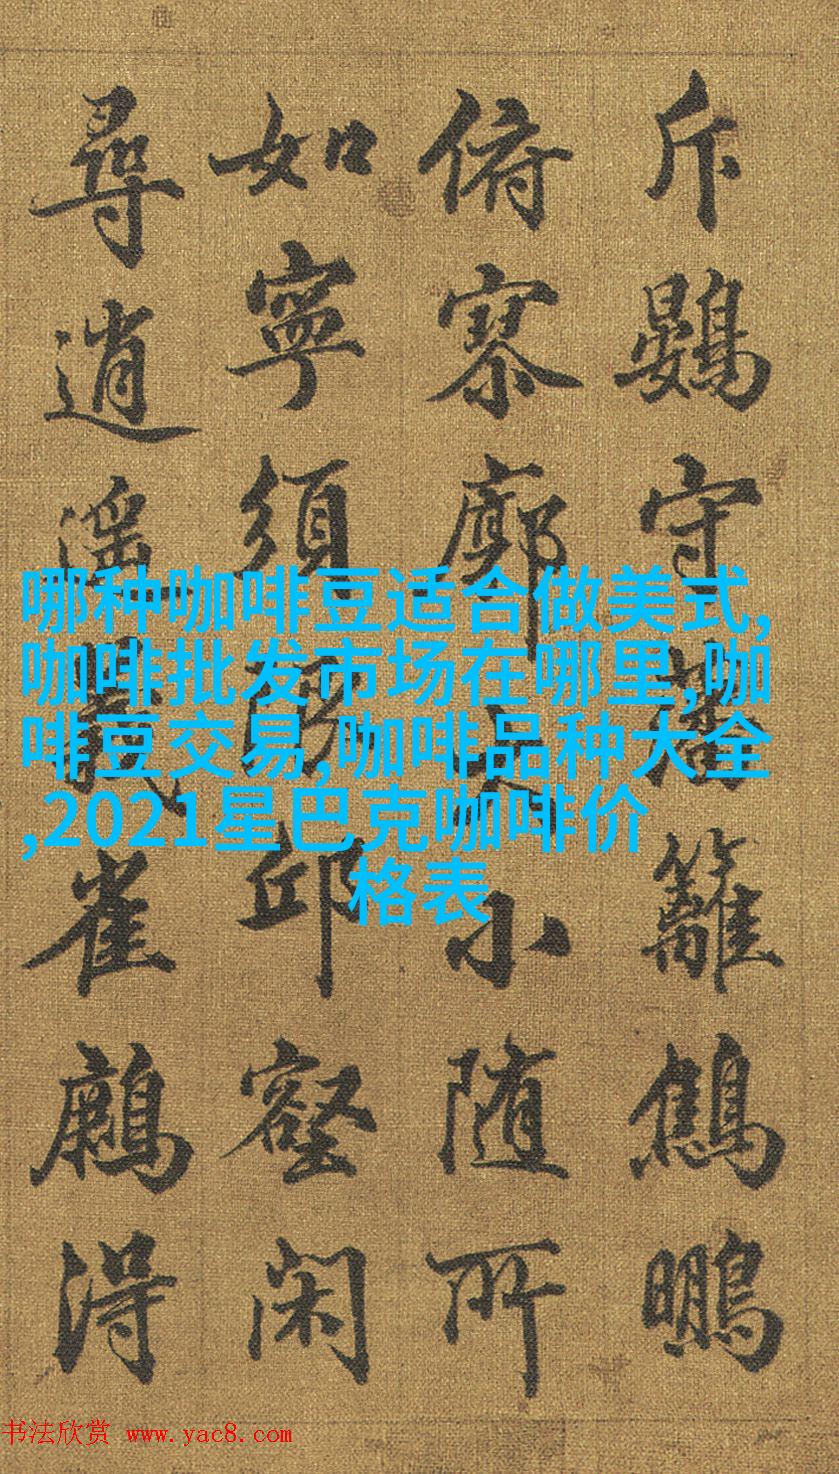 斥鷃守藩籬鷦鵬
俯寥廓大小随所
如寧須邱壑閑
尋逍遥義雀得
哪种咖啡豆适合做美式,
咖啡批发市场在哪里,咖
啡豆交易,咖啡品种大全
,2021星巴克咖啡价
格表
书法欣赏 www.yac8.com